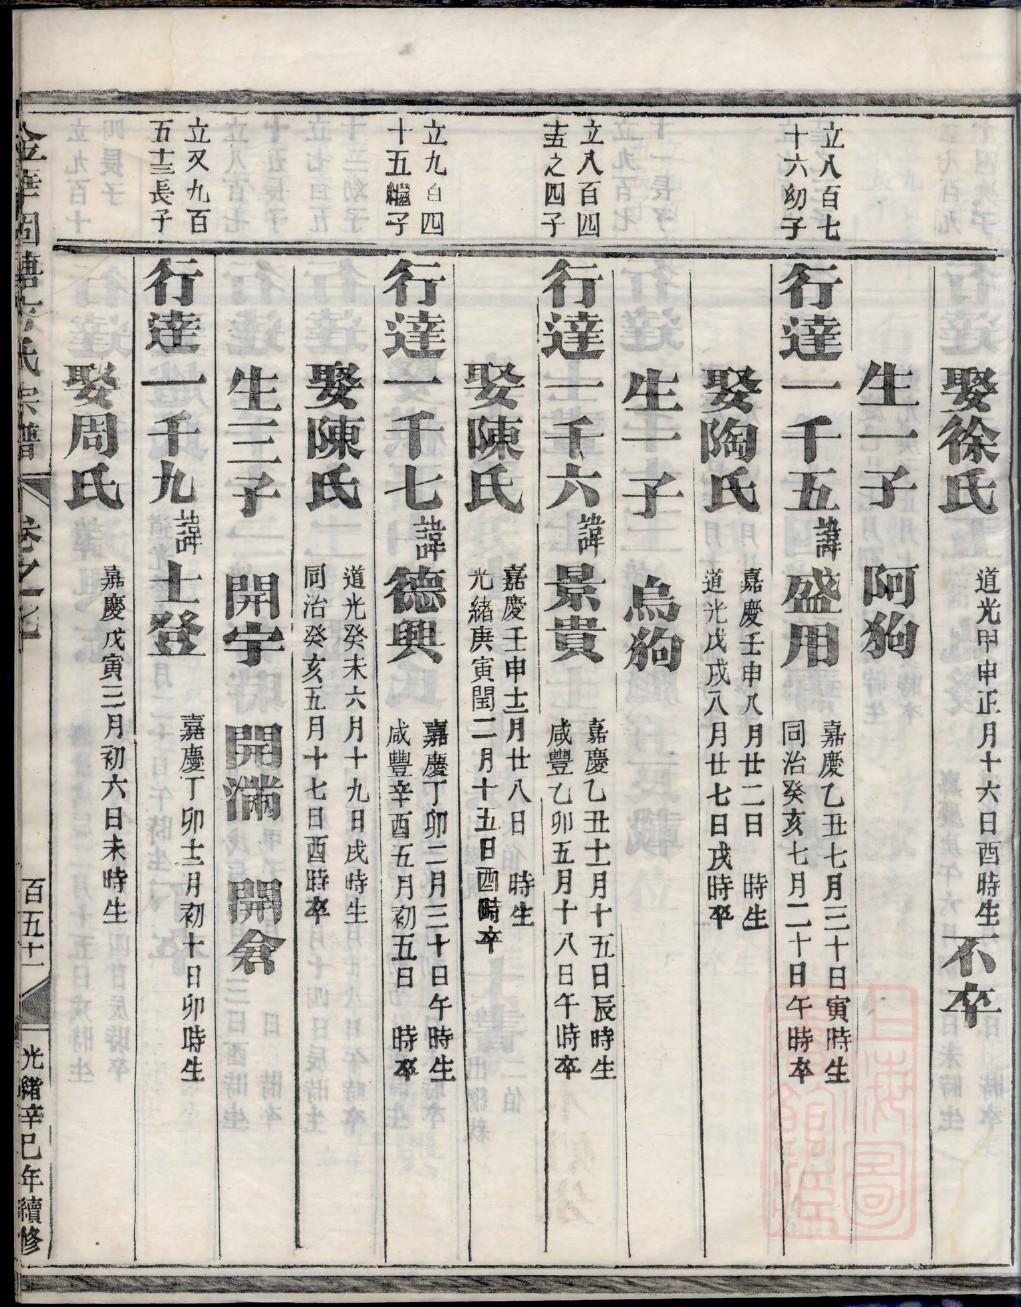 娶徐氏 道光甲申正月十六日酉時生 不卒
生一子 阿狗
立八百七
十六幼子
行達一千五 諱盛用 嘉慶乙丑七月三十日寅時生
同治癸亥七月二十日午時卒
娶陶氏 嘉慶壬申八月廿二日 時生
道光戊戌八月廿七日戌時卒
生一子 烏狗
立八百四
十五之四子
行達一千六 諱景貴 嘉慶乙丑十一月十五日辰時生
咸豐乙卯五月十八日午時卒
娶陳氏 嘉慶壬申十二月廿八日 時生
光緒庚寅閏二月十五日酉時卒
立九百四
十五繼子
行達一千七 諱德興 嘉慶丁卯二月三十日午時生
咸豐辛酉五月初五日 時卒
娶陳氏 道光癸未六月十九日戌時生
同治癸亥五月十七日酉時卒
生三子 開宇 開滿 開倉
立又九百
五十三長子
行達一千九 諱士登 嘉慶丁卯十二月初十日卯時生
娶周氏 嘉慶戊寅三月初六日未時生
氏宗譜 卷之 百五十一 光緒辛巳年續修